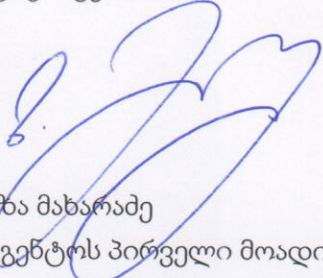 ხა მახარაძე
გენტოს პირველი მოადი